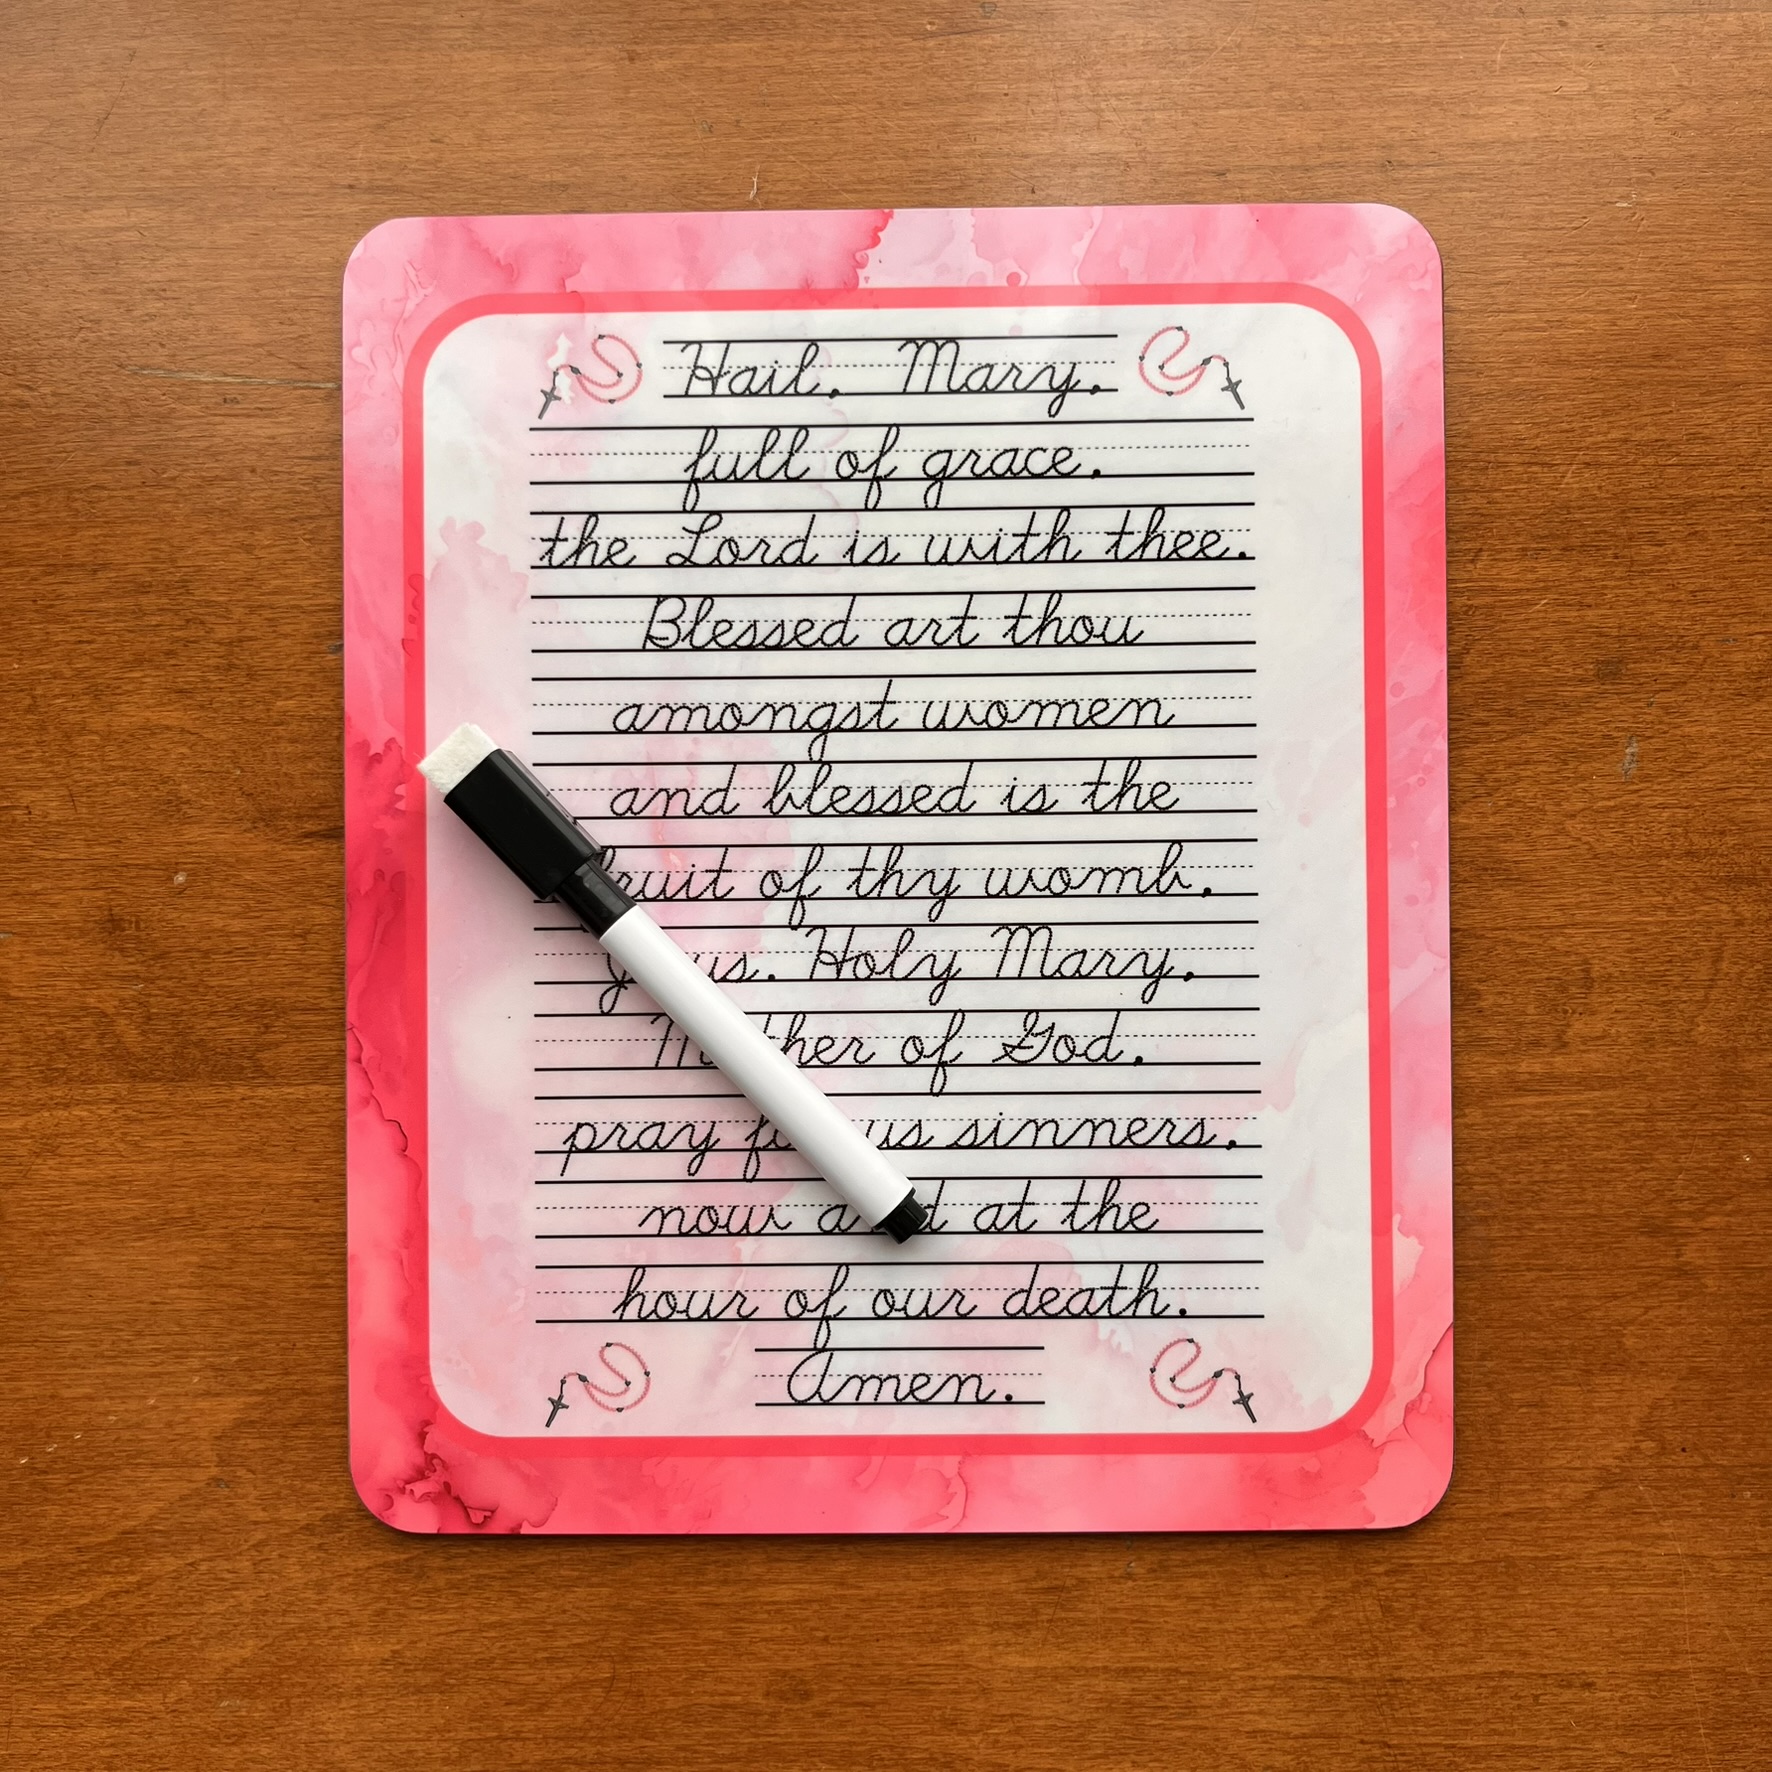 Hail. Mary.
full of grace.
the Lord is with thee.
Blessed art thou
amongst women
and blessed is the
fruit of thy womb.
Jesus. Holy Mary.
Mother of God.
pray for us sinners.
now and at the
hour of our death.
Amen.